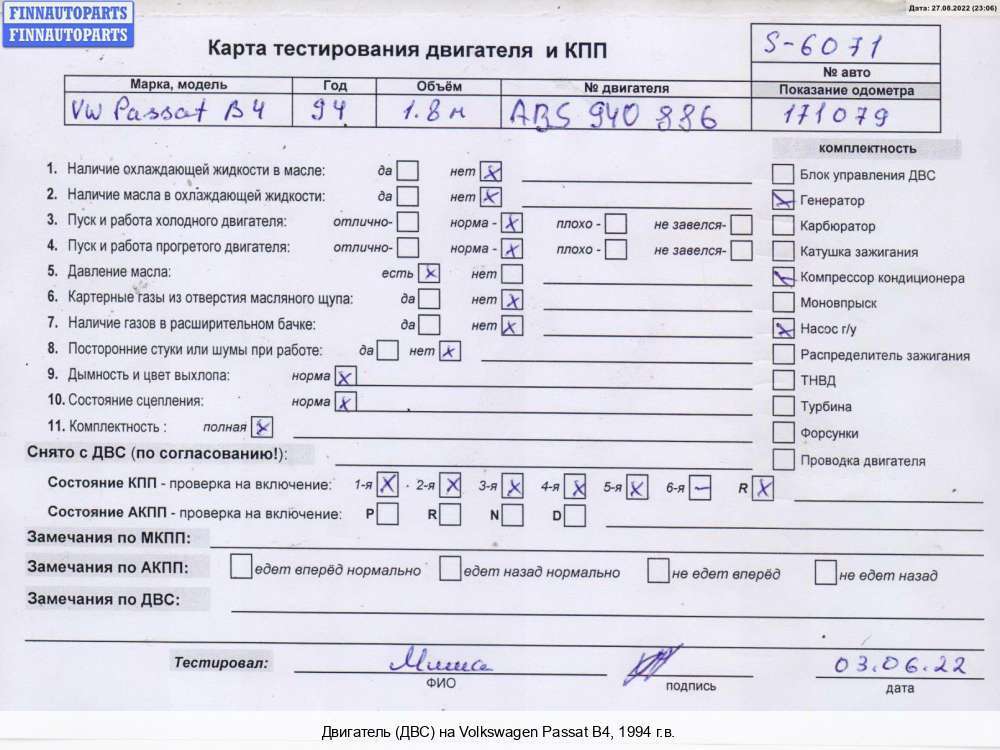 FINNAUTOPARTS
FINNAUTOPARTS
Дата: 27.06.2022 (23:06)
Карта тестирования двигателя и КПП
S-6071
№ авто
Марка, модель Год Объём № двигателя Показание одометра
VW Passat B4 94 1.8 н ABS 940 886 171079
комплектность
1. Наличие охлаждающей жидкости в масле: да нет x
Блок управления ДВС
2. Наличие масла в охлаждающей жидкости: да нет x
Генератор
3. Пуск и работа холодного двигателя: отлично- норма - x плохо - не завелся-
Карбюратор
4. Пуск и работа прогретого двигателя: отлично- норма - x плохо - не завелся-
Катушка зажигания
5. Давление масла: есть x нет
Компрессор кондиционера
6. Картерные газы из отверстия масляного щупа: да нет x
Моновпрыск
7. Наличие газов в расширительном бачке: да нет x
Насос г/у
8. Посторонние стуки или шумы при работе: да нет x
Распределитель зажигания
9. Дымность и цвет выхлопа: норма x
ТНВД
10. Состояние сцепления: норма x
Турбина
11. Комплектность : полная x
Форсунки
Снято с ДВС (по согласованию!):
Проводка двигателя
Состояние КПП - проверка на включение: 1-я x 2-я x 3-я x 4-я x 5-я x 6-я – R x
Состояние АКПП - проверка на включение: P R N D
Замечания по МКПП:
Замечания по АКПП: едет вперёд нормально едет назад нормально не едет вперёд не едет назад
Замечания по ДВС:
Тестировал: Миша 03.06.22
ФИО подпись дата
Двигатель (ДВС) на Volkswagen Passat B4, 1994 г.в.